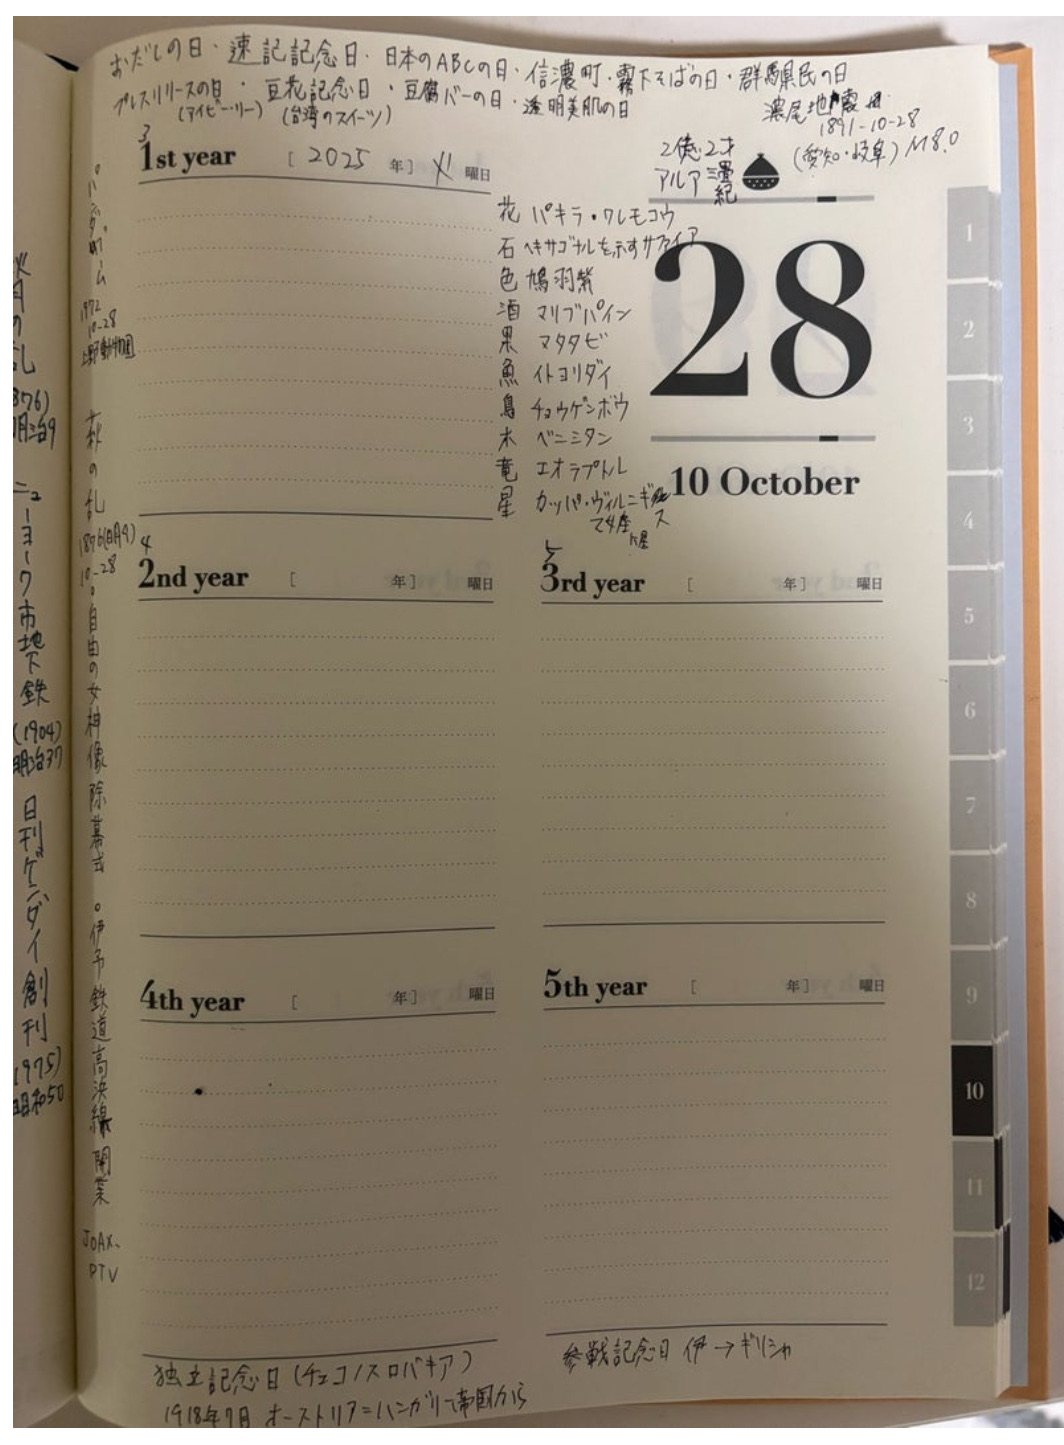 おだしの日・速記記念日・日本のABCの日・信濃町・霧下そばの日・群馬県民の日
プレスリリースの日・豆花記念日・豆腐バーの日・透明美肌の日
(アイビーリー) (台湾のスイーツ)
濃尾地震
1891-10-28
(愛知・岐阜) M8.0
3
1st year [ 2025 年] 火 曜日
2億2才
アルア 三畳紀
花 パキラ・ワレモコウ
石 ヘキサゴナルを示すサファイア
色 鳩羽紫
酒 マリブパイン
果 マタタビ
魚 イトヨリダイ
鳥 チョウゲンボウ
木 ベニシタン
竜 エオラプトル
星 カッパ・ヴィルギニス
28
10 October
4
2nd year [ 年] 曜日
5
3rd year [ 年] 曜日
4th year [ 年] 曜日
5th year [ 年] 曜日
独立記念日(チェコ/スロバキア)
1918年7月 オーストリア=ハンガリー帝国から
参戦記念日 伊→ギリシャ
。パンダブーム
1972
10-28
上野動物園
萩の乱
1876(明9)
10-28
。自由の女神像除幕式
。伊予鉄道高浜線開業
JOAX、
PTV
の乱
876)
明治9
ニューヨーク市地下鉄
(1904)
明治37
日刊ゲンダイ創刊
1975)
昭和50
1
2
3
4
5
6
7
8
9
10
11
12